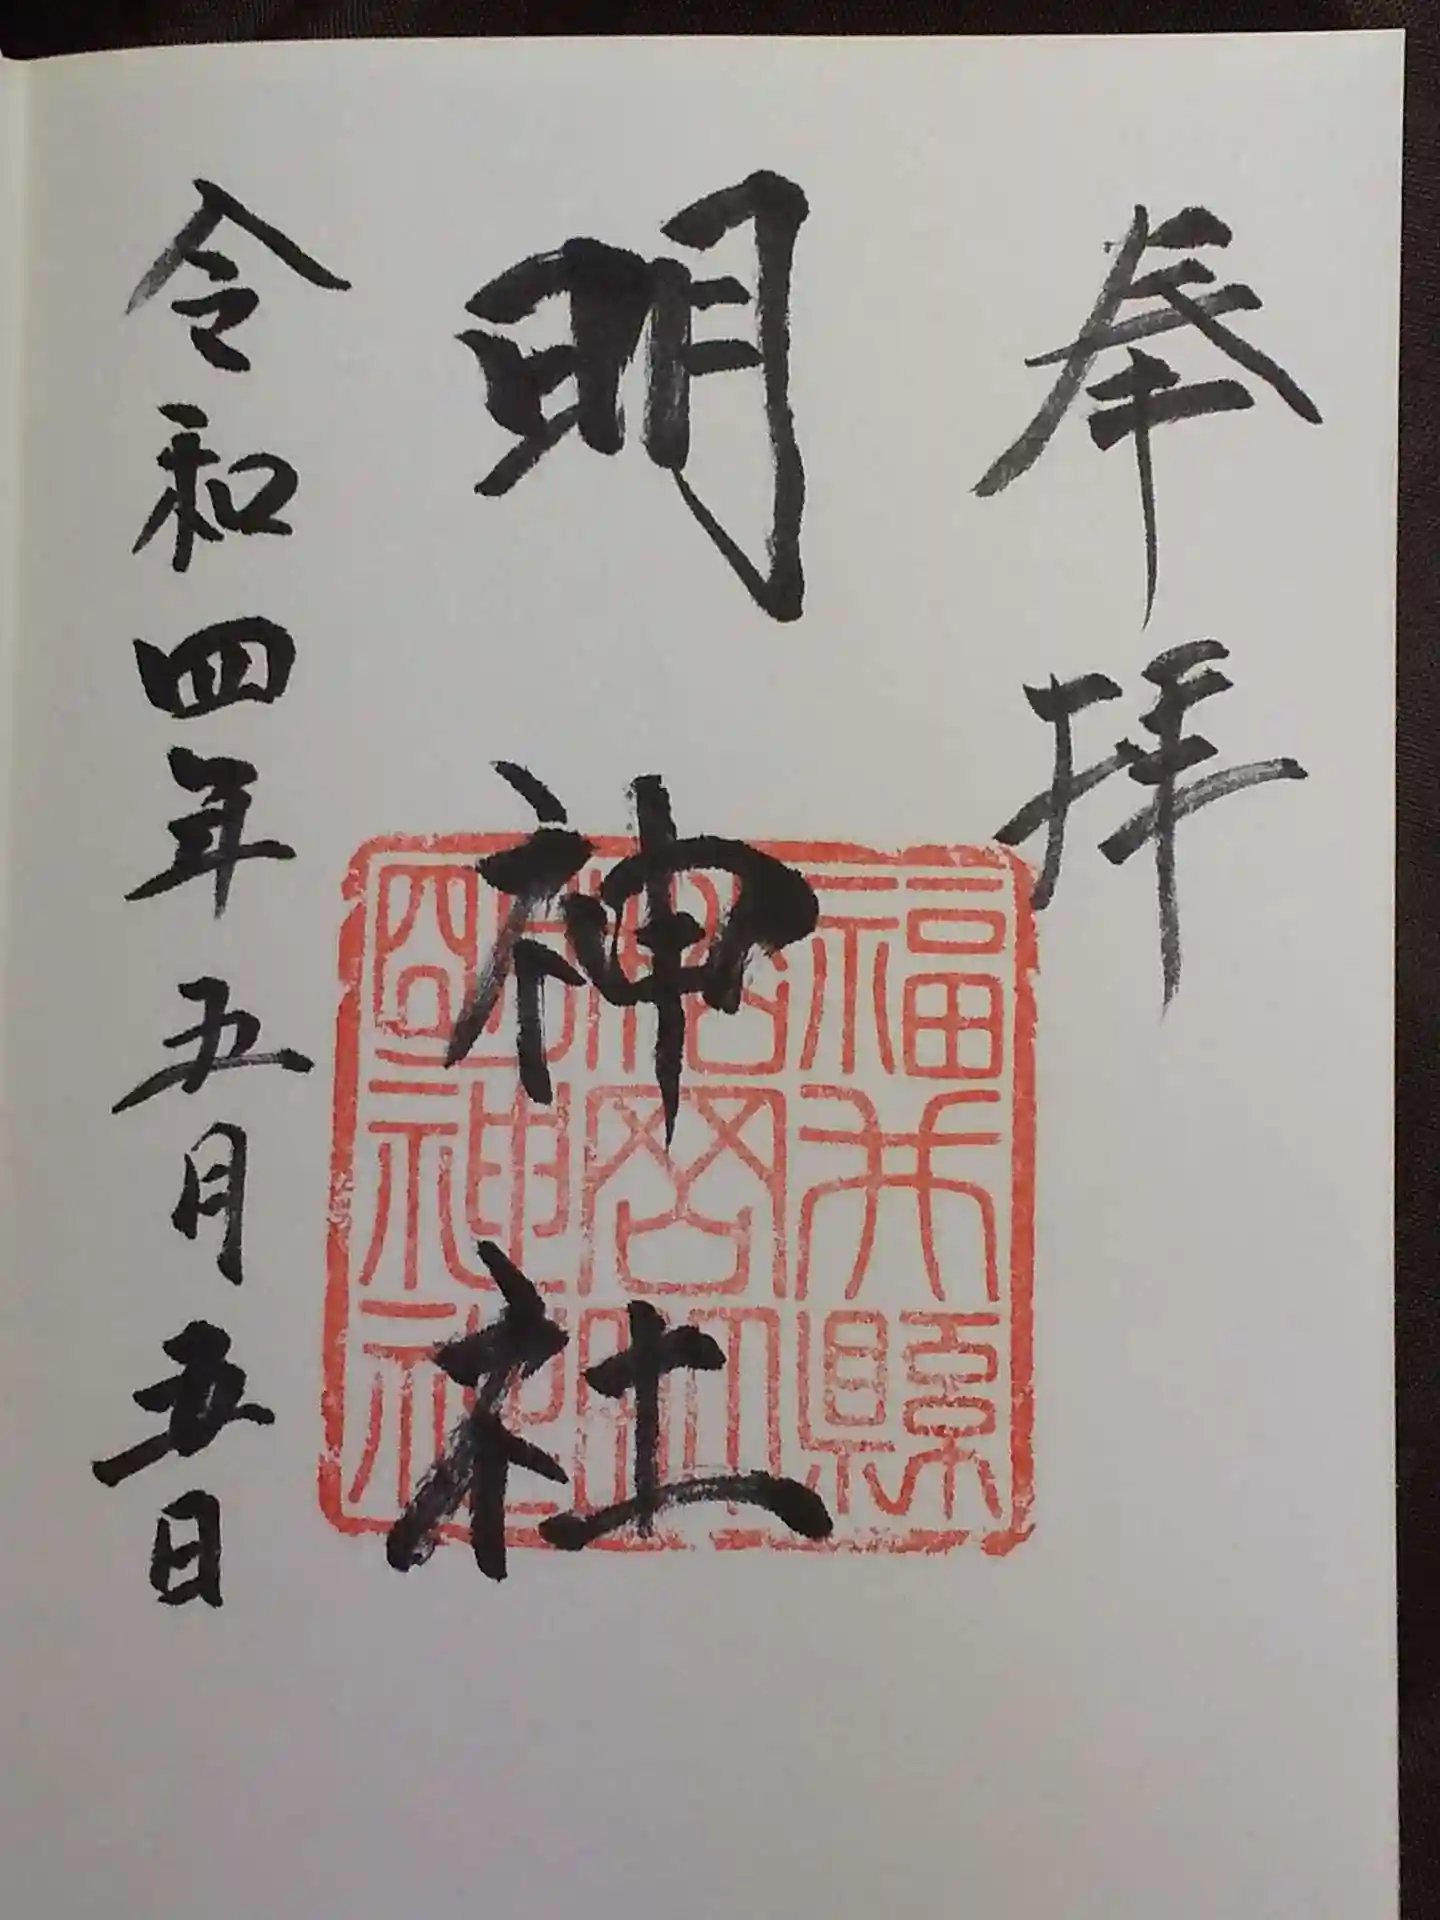 奉拝
明神社
令和四年五月五日
福井縣
神社